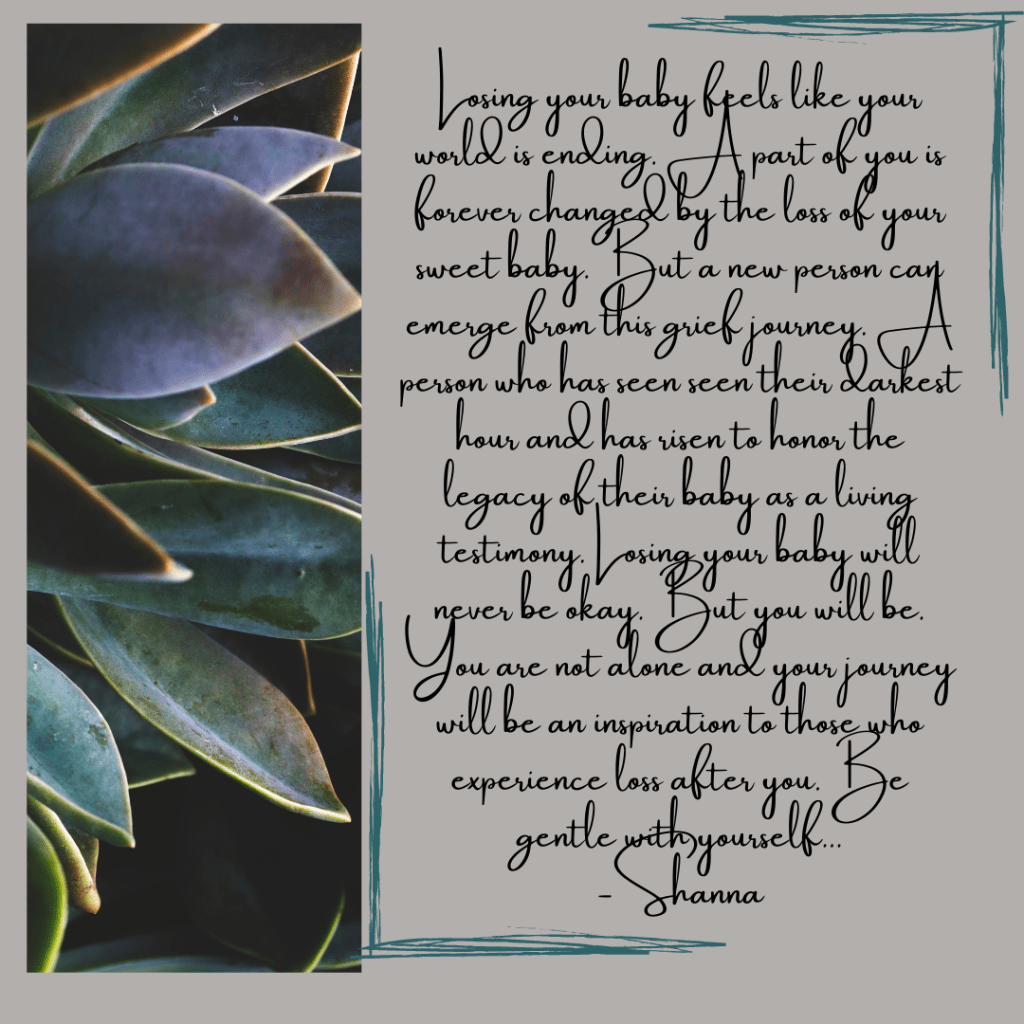 Losing your baby feels like your
world is ending. A part of you is
forever changed by the loss of your
sweet baby. But a new person can
emerge from this grief journey. A
person who has seen seen their darkest
hour and has risen to honor the
legacy of their baby as a living
testimony. Losing your baby will
never be okay. But you will be.
You are not alone and your journey
will be an inspiration to those who
experience loss after you. Be
gentle with yourself...
- Shanna